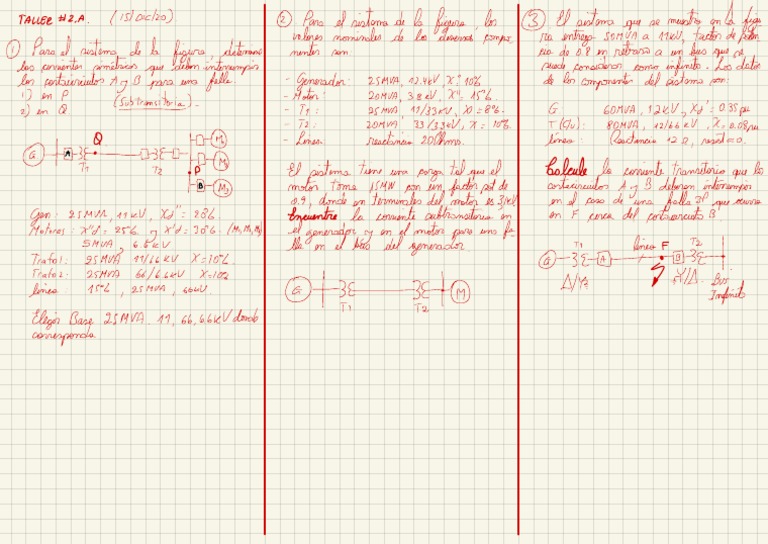 TALLER #2.A. (15/Dic/20)
① Para el sistema de la figura, determine
las corrientes simétricas que deben interrumpir
los cortacircuitos A y B para una falla
1) en P
2) en Q
(Subtransitoria).
Q
G
A
T1
T2
P
M1
M2
B
M3
Gen: 25MVA, 11KV, Xd'' = 20%
Motores: X''d = 25% y X'd = 30% (M1, M2, M3)
5MVA, 6.6KV
Trafo1: 25MVA 11/66KV X=10%
Trafo2: 25MVA 66/6.6KV X=10%
línea: 15%, 25MVA, 66KV
Elegir Base 25MVA. 11, 66, 6.6KV donde
corresponda.
② Para el sistema de la figura los
valores nominales de los diversos compo-
nentes son:
- Generador: 25MVA, 12.4KV, X'': 10%
- Motor: 20MVA, 3.8KV, X''= 15%
- T1: 25MVA 11/33KV, X=8%.
- T2: 20MVA 33/3.3KV, X=10%
- Línea: reactancia 20Ohms.
El sistema tiene una carga tal que el
motor toma 15MW con un factor pot de
0.9, donde en terminales del motor es 3,1KV
Encuentre la corriente subtransitoria en
el generador y en el motor para una fa-
lla en el bus del generador
G
T1
T2
M
③ El sistema que se muestra en la figu-
ra entrega 50MVA a 11KV, factor de poten-
cia de 0.8 en retraso a un bus que se
puede considerar como infinito. Los datos
de los componentes del sistema son:
G: 60MVA, 12KV, Xd' = 0.35 pu
T (C/u): 80MVA, 12/66KV, X = 0.08pu
línea: Reactancia 12Ω, resist=0.
Calcule la corriente transitoria que los
cortacircuitos A y B deberán interrumpir
en el caso de una falla 3F que ocurra
en F cerca del cortacircuito B.
G
T1
A
línea
F
B
T2
Δ/Y
Y/Δ
Bus
Infinito